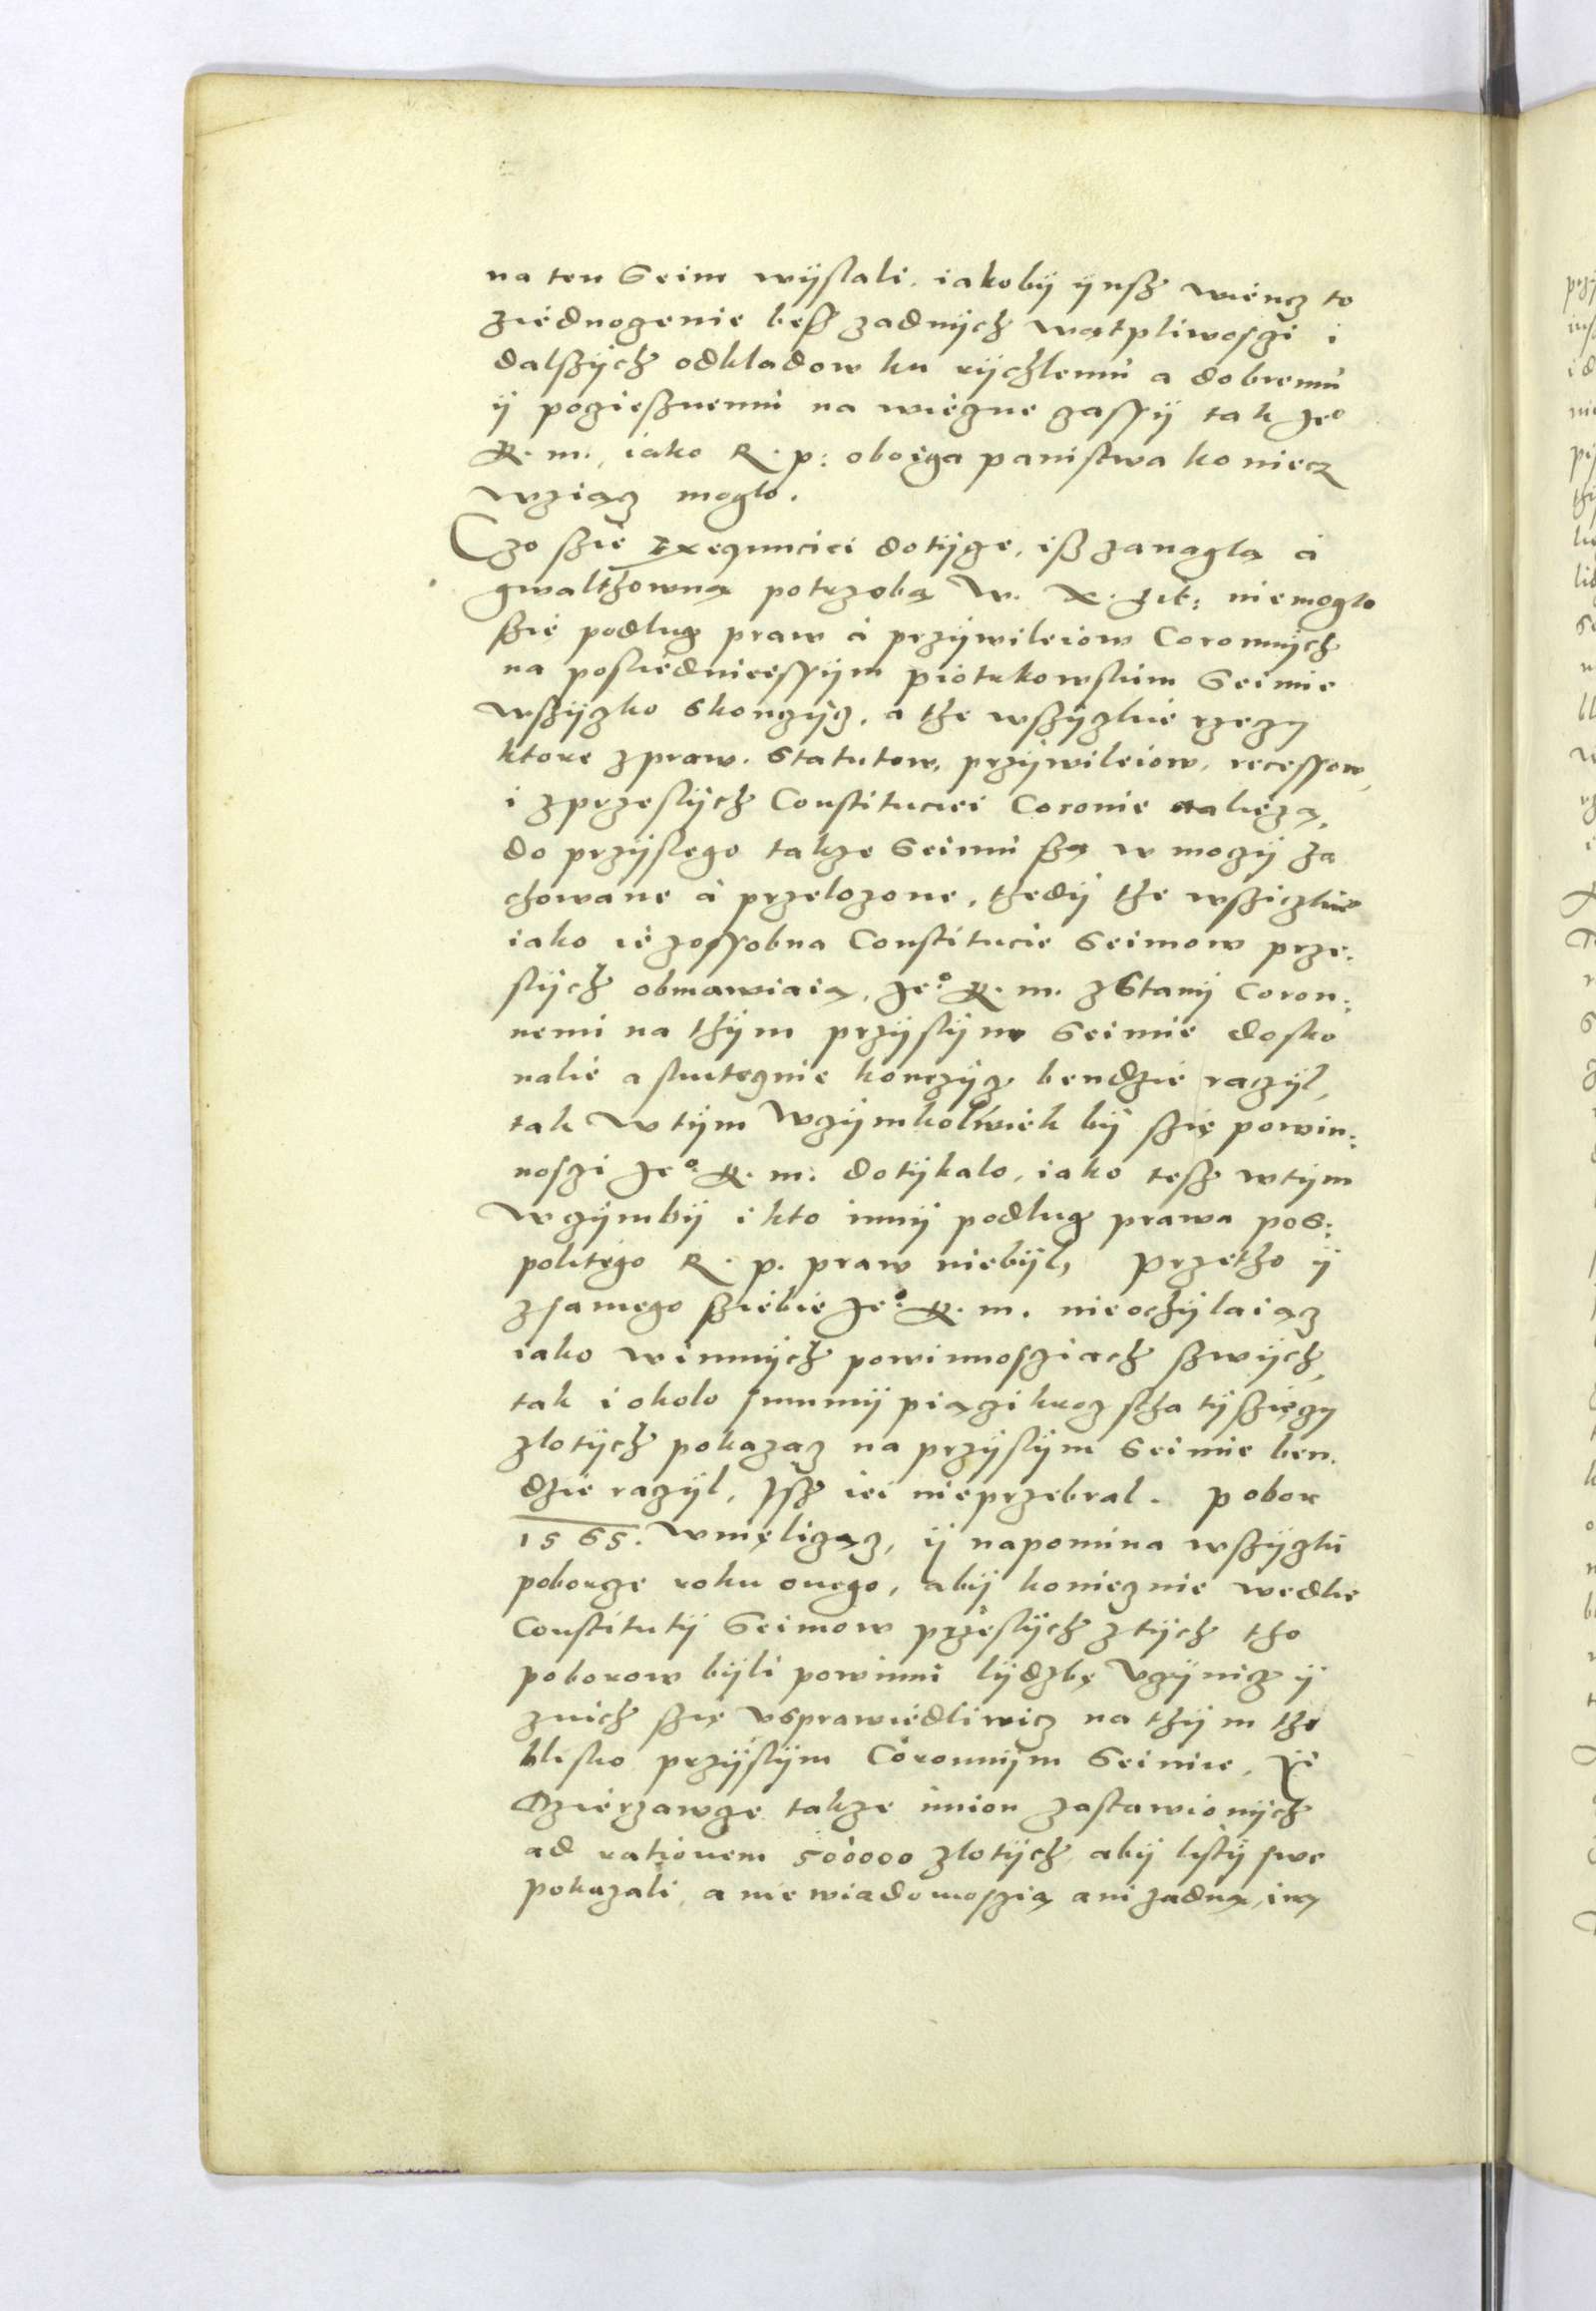 na ten Seim wÿslali. iakobÿ ÿnsz wiencz to
ziednoczenie besz zadnÿch wątpliwoszczi i
dalszÿch odkladow ku rÿchlemu a dobremu
ÿ pocziesznemu na wieczne czassÿ tak Jeo
K. m., iako R. p: oboiga panistwa koniecz
wziącz moglo.
Czo szie Exequuciei dotÿcze, isz zanaglą a
gwalthowną potrzebą W. X. Lit: niemoglo
szie podlug praw a przÿwileiow Coronnÿch
na posliedniecssÿm piotrkowskim Seimie
wszÿczko skonczÿcz. a the wszÿczkie rzeczy
ktore z praw. Statutow, przÿwileiow, recessow,
i z przeslÿch Constituciei Coronie należą,
do przÿslego takze Seimu szą w moczÿ za
chowane a przelozone, thedÿ the wsziczkie
iako ie zossobna Constitucie Seimow prze:
slÿch obmawiaią, Jeo. K. m. z Stanÿ Coron:
nemi na thÿm przÿslÿm Seimie dosko
nalie a skutecznie konczÿcz bendzie raczÿl,
tak w tÿm w czÿmkolwiek bÿ szię powin:
noszczi Jeo. K. m: dotÿkalo, iako tesz w tÿm
w czÿmbÿ i kto innÿ podlug prawa pos:
politego R. p. praw niebÿl, Przetho ÿ
z samego sziebie Jeo. K. m. nieochÿlaiącz
iako w innÿch powinnoscziach szwÿch,
tak i okolo summÿ piączikrocz stha tÿszięczy
zlotÿch pokazacz na przÿslÿm Seimie ben.
dzie raczÿl, Jsz iei nieprzebral. Pobor
1565. wmęliczącz, ÿ napomina wszÿczki
poborcze roku onego, abÿ koniecznie wedlie
Constitutÿ Seimow przeslÿch z tÿch tho
poborow bÿli powinni lÿdzbę vczÿnicz ÿ
znich szię vsprawiedliwicz na thÿm tho
blisko przÿslÿm Coronnÿm Seimie,
Dzierzawcze takze imion zastawionÿch
ad rationem 500000 zlotÿch abÿ listÿ swe
pokazali, a niewiadomoszczią ani zadną, iną